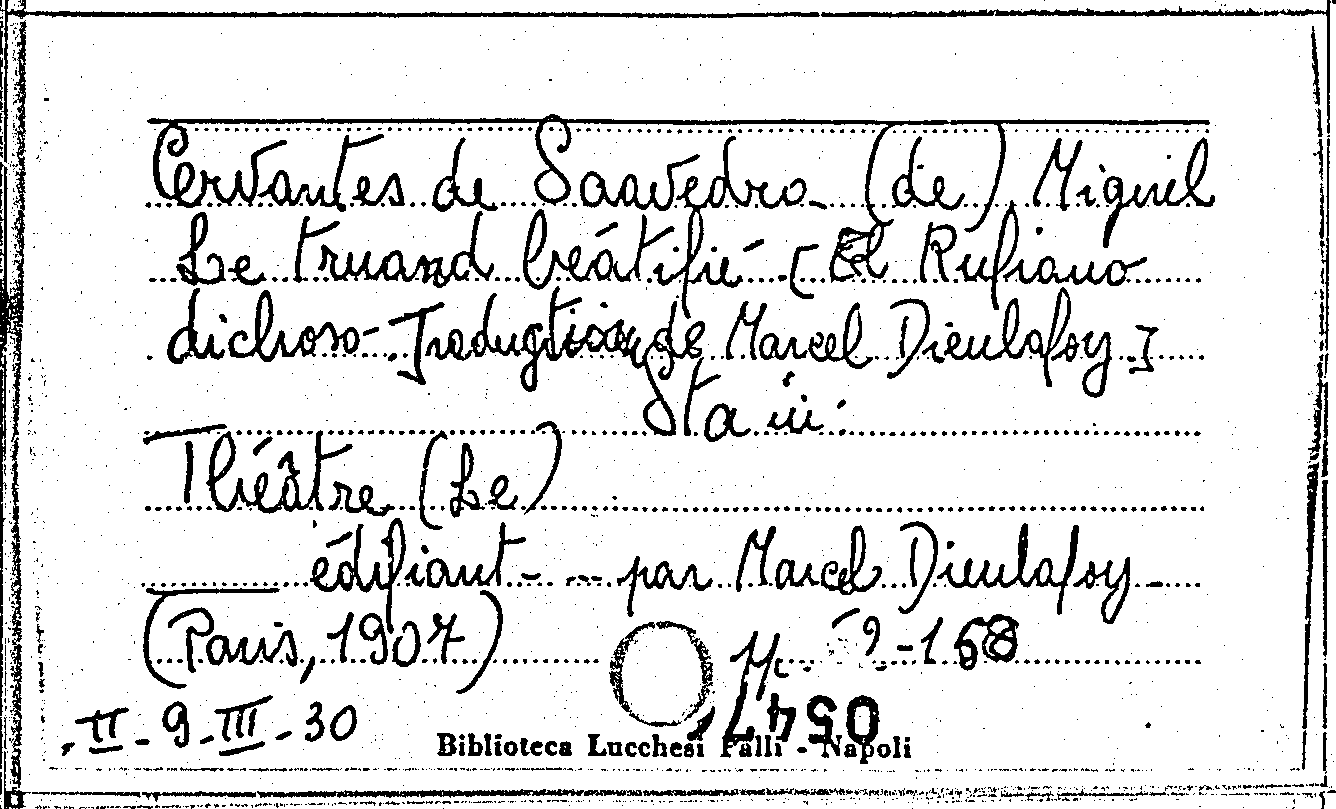 Cervantes de Saavedra (de) Miguel
Le truand béátifié - [El Rufiano
dichoso - Traduction de Marcel Dieulafoy]
Sta in:
Théâtre (Le)
édifiant - ... par Marcel Dieulafoy -
(Paris, 1907)
-168
II - 9 - III - 30
Biblioteca Lucchesi Palli - Napoli